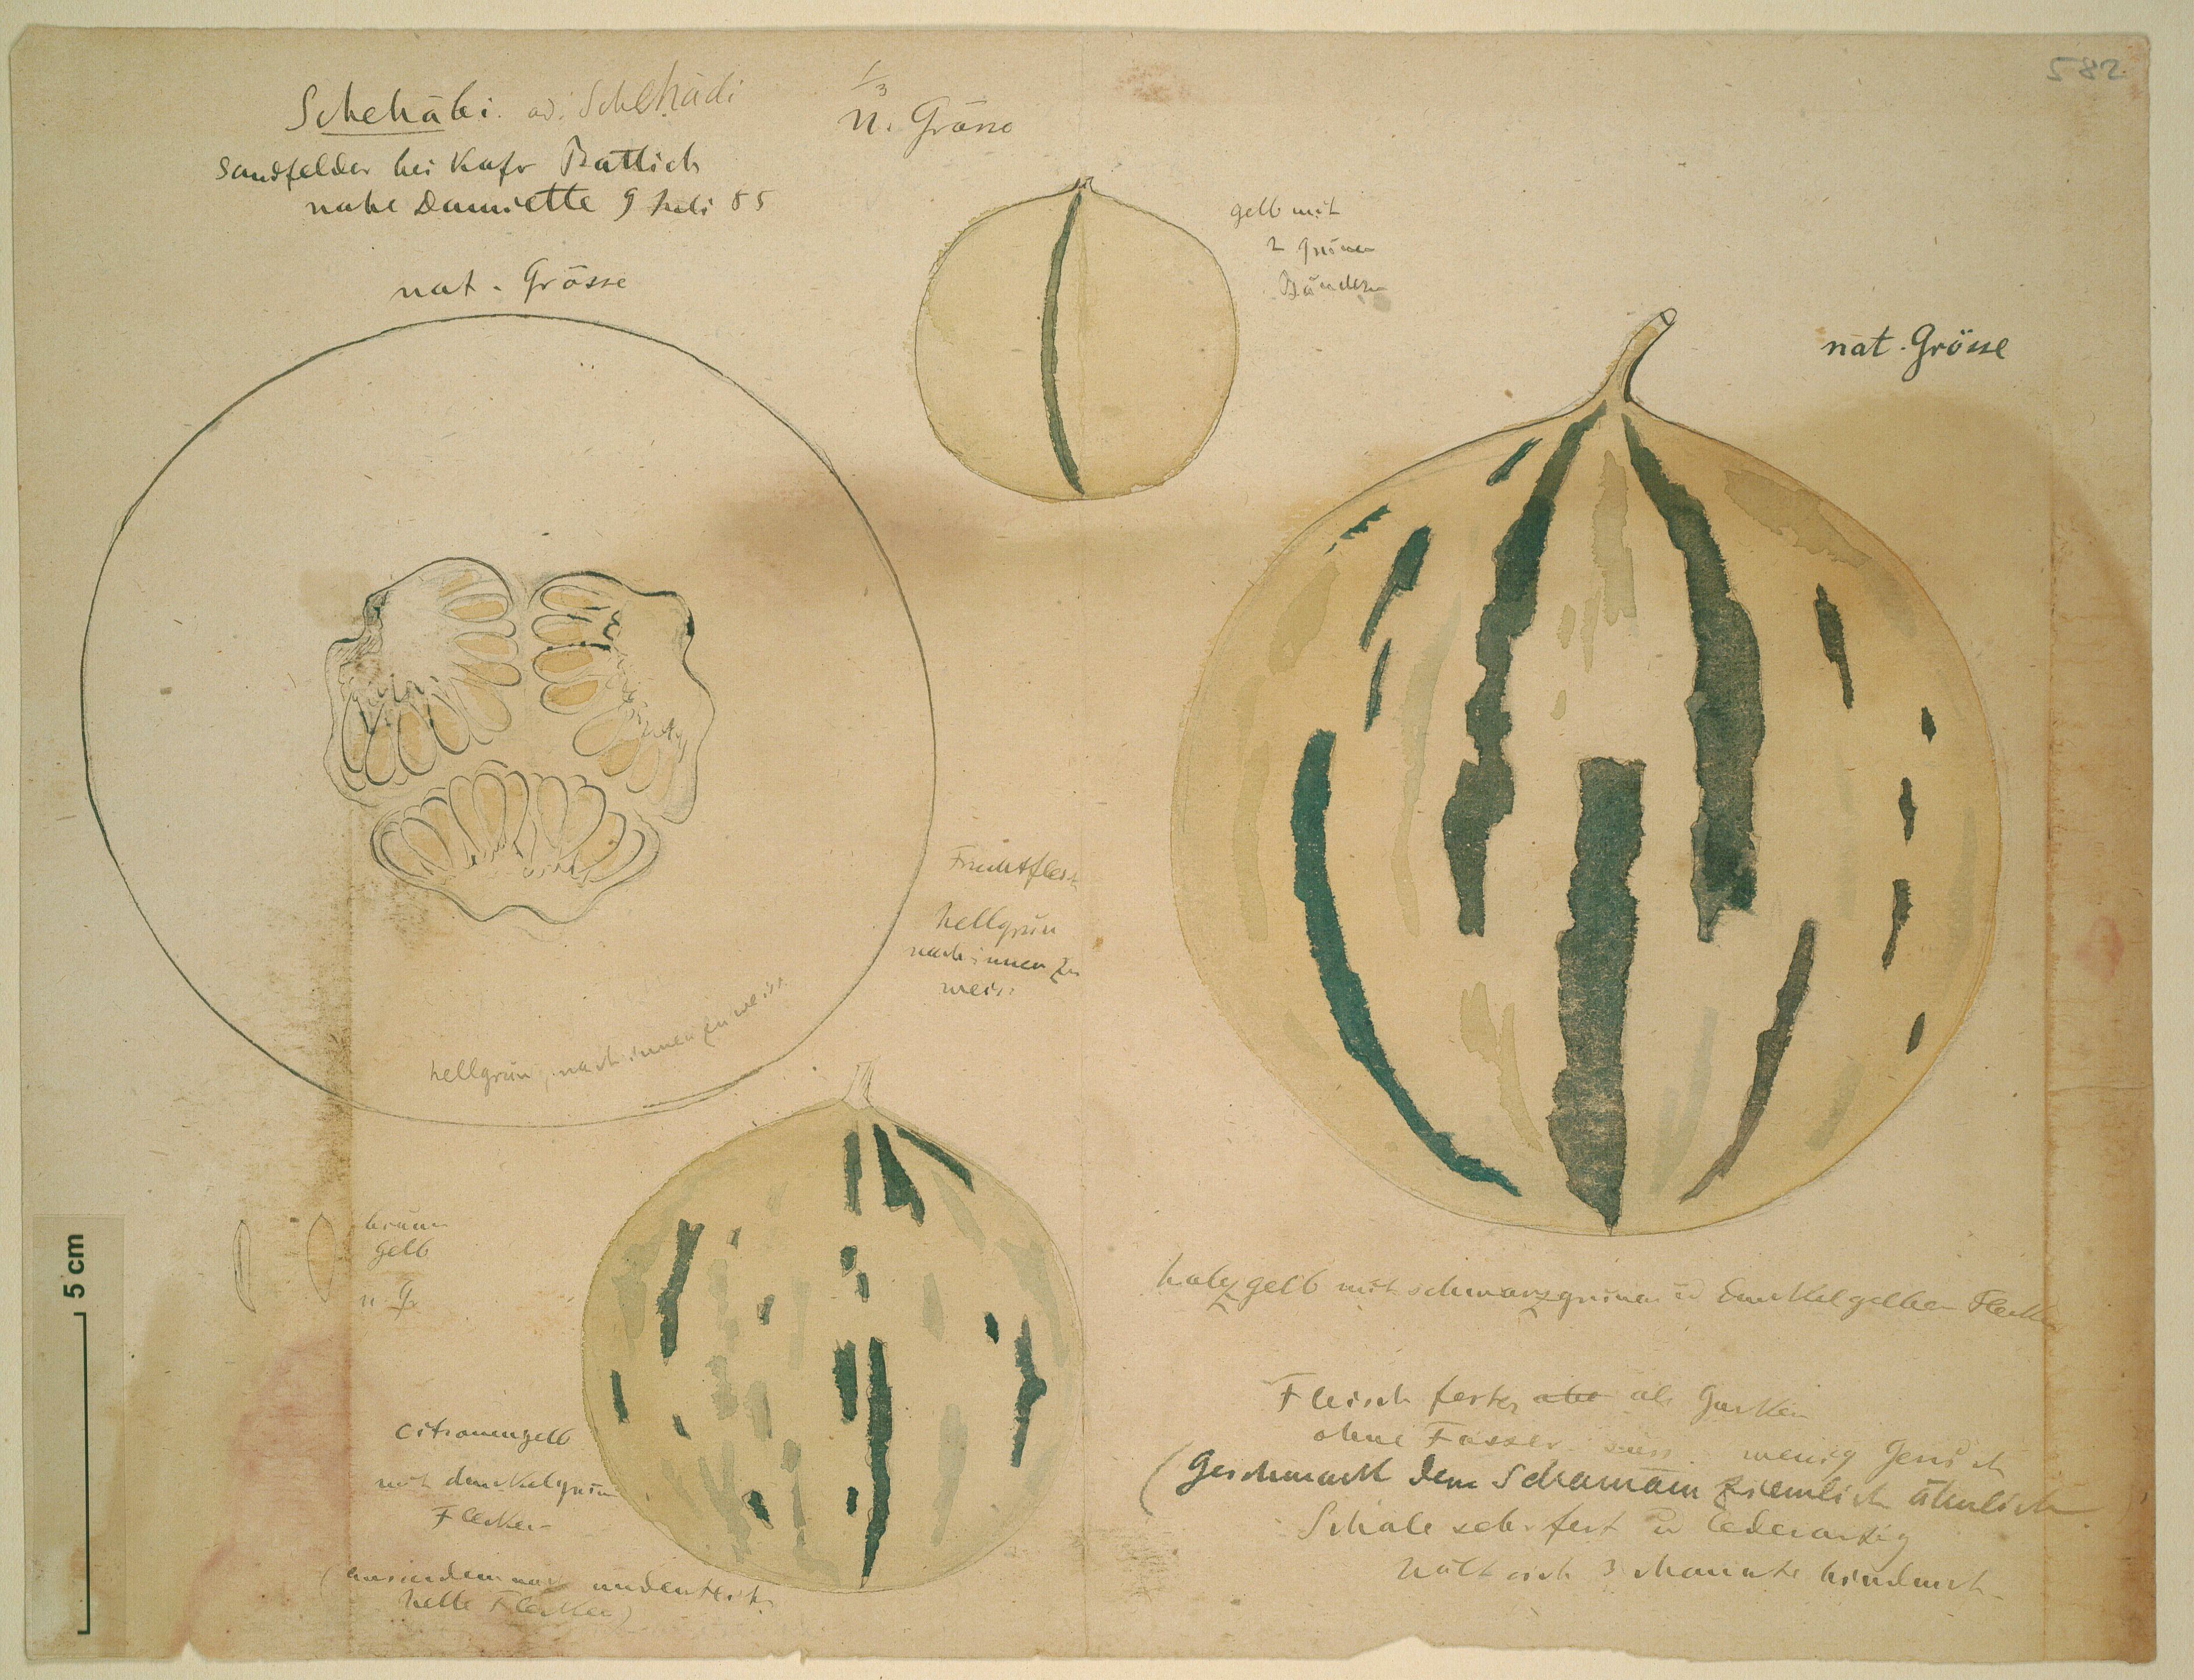 582
Schehābi. od. Schehādi
Sandfelder bei Kafr Battich
nahe Damiette 9 Juli 85
nat. Grösse
1/3
n. Grösse
gelb mit
2 grünen
Bändern
nat. Grösse
Fruchtfleisch
hellgrün
nach innen zu
weiss
hellgrün, nach innen zu weiss
braun
gelb
n. Gr.
citronengelb
mit dunkelgrün
Flecken
(ausserdem noch undeutlich
helle Flecken)
holzgelb mit schwarzgrünen u dunkelgelben Flecken
Fleisch fester als Gurken
ohne Fasser süss wenig
(Geschmack dem Schamām ziemlich ähnlich
Schale sehr fest u lederartig
hält sich 3 Monate hindurch
5 cm